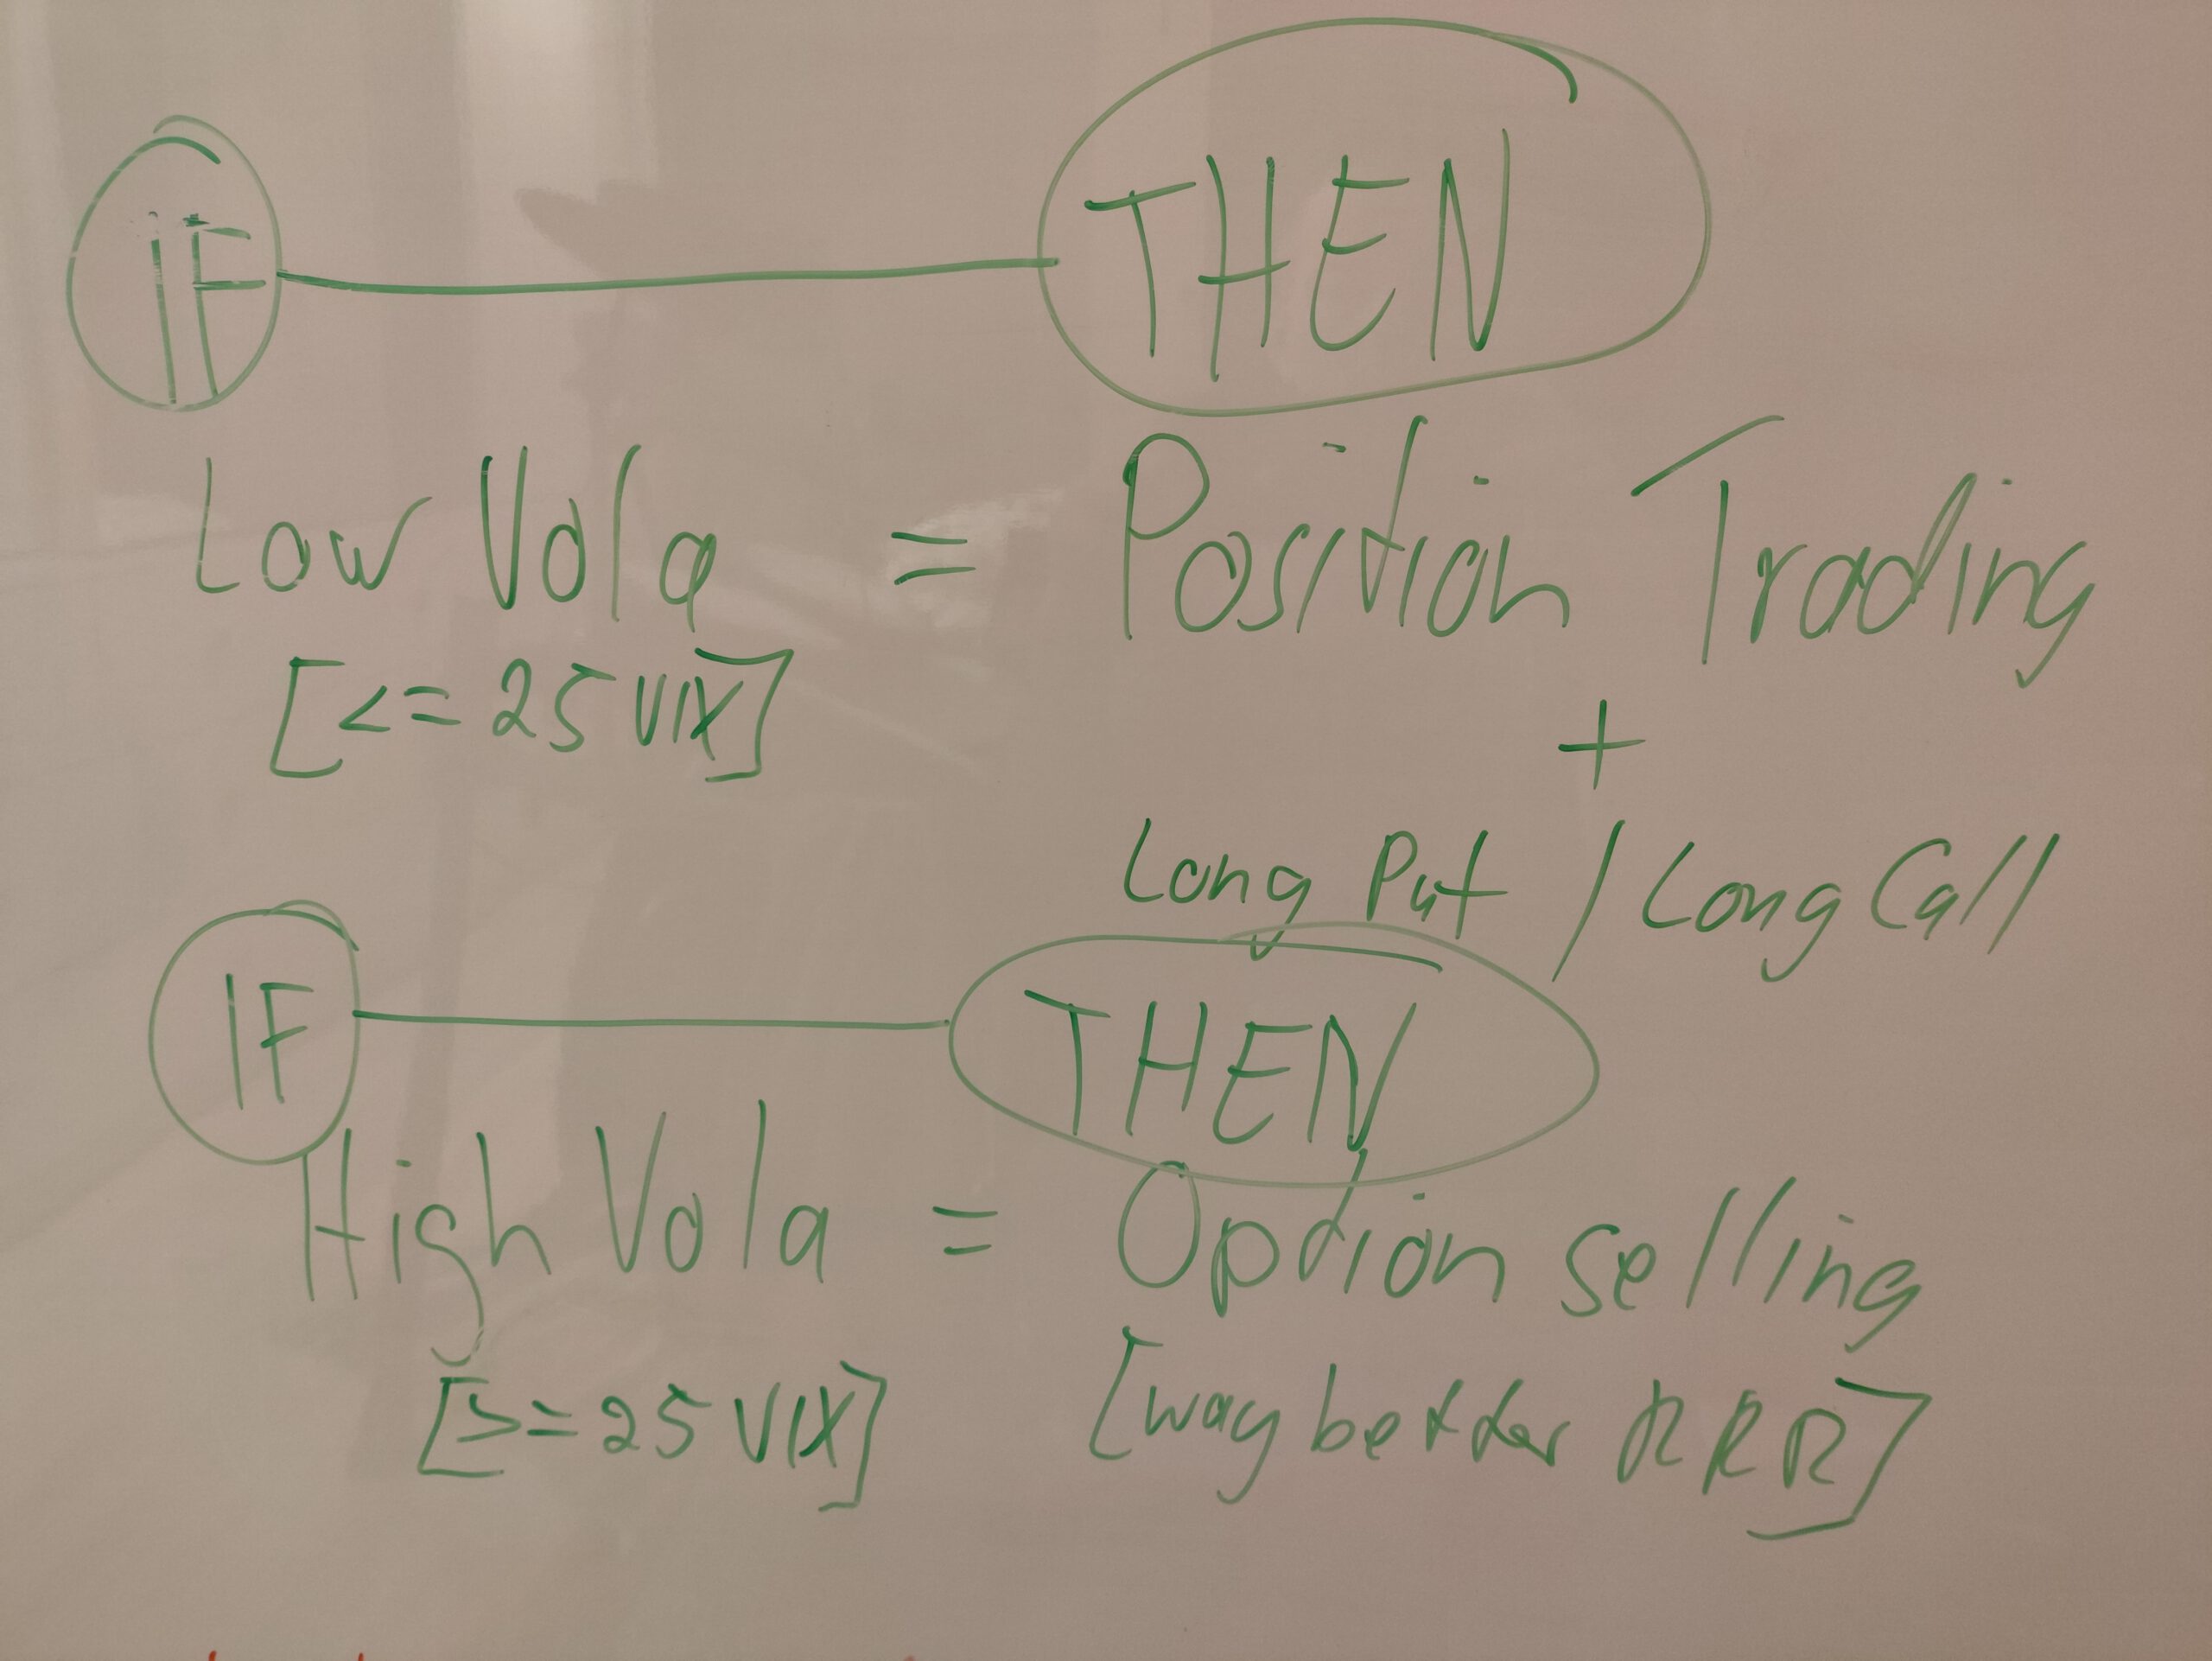 IF THEN
Low Vola = Position Trading
[<= 25 VIX]
+
Long Put / Long Call
IF THEN
High Vola = Option selling
[>= 25 VIX] [way better RRR]